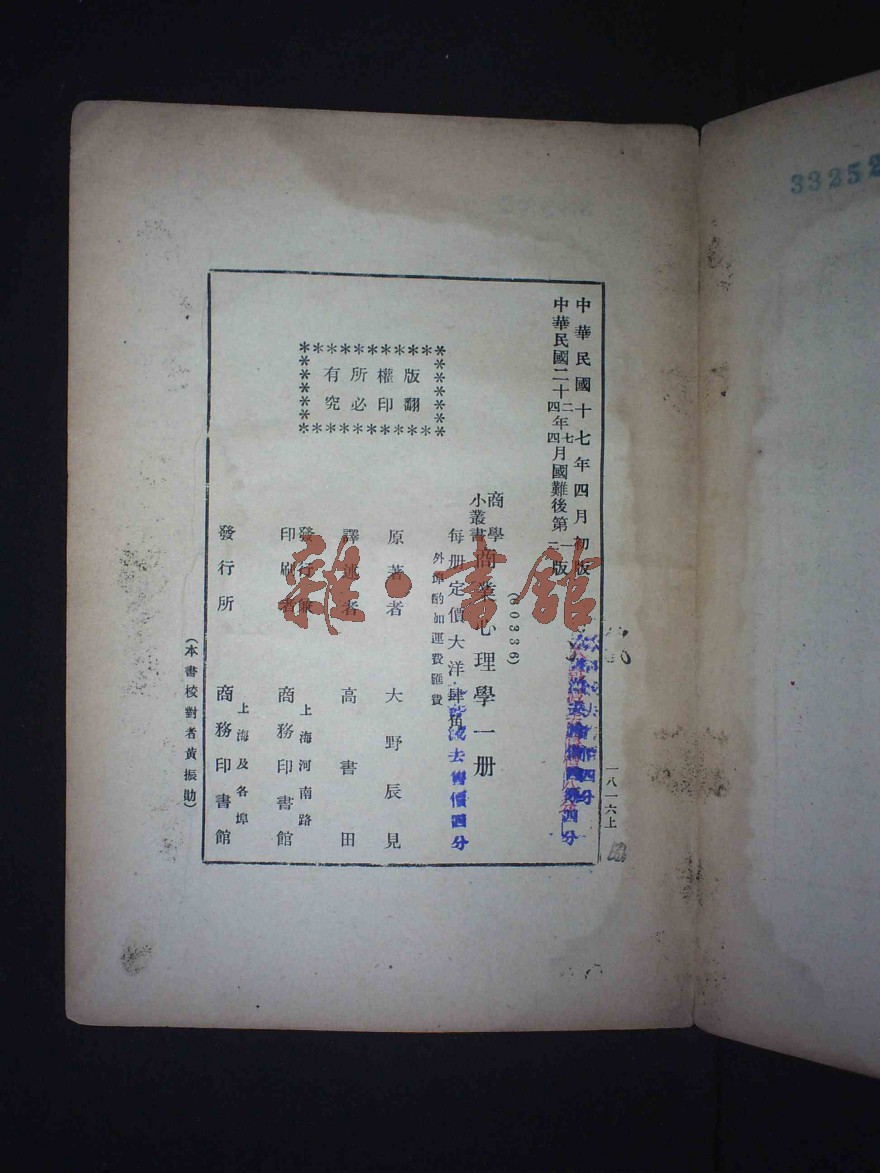 33252
中華民國十七年四月初版
中華民國二十二四年七四月國難後第一二版
(60336)
商學小叢書 商業心理學一册
每册定價大洋肆角
外埠酌加運費匯費
原著者 大野辰見
譯述者 高書田
發行兼印刷者 上海河南路 商務印書館
發行所 上海及各埠 商務印書館
版權所有
翻印必究
(本書校對者黃振勛)
一八一六上
去售價四分
雜·書館